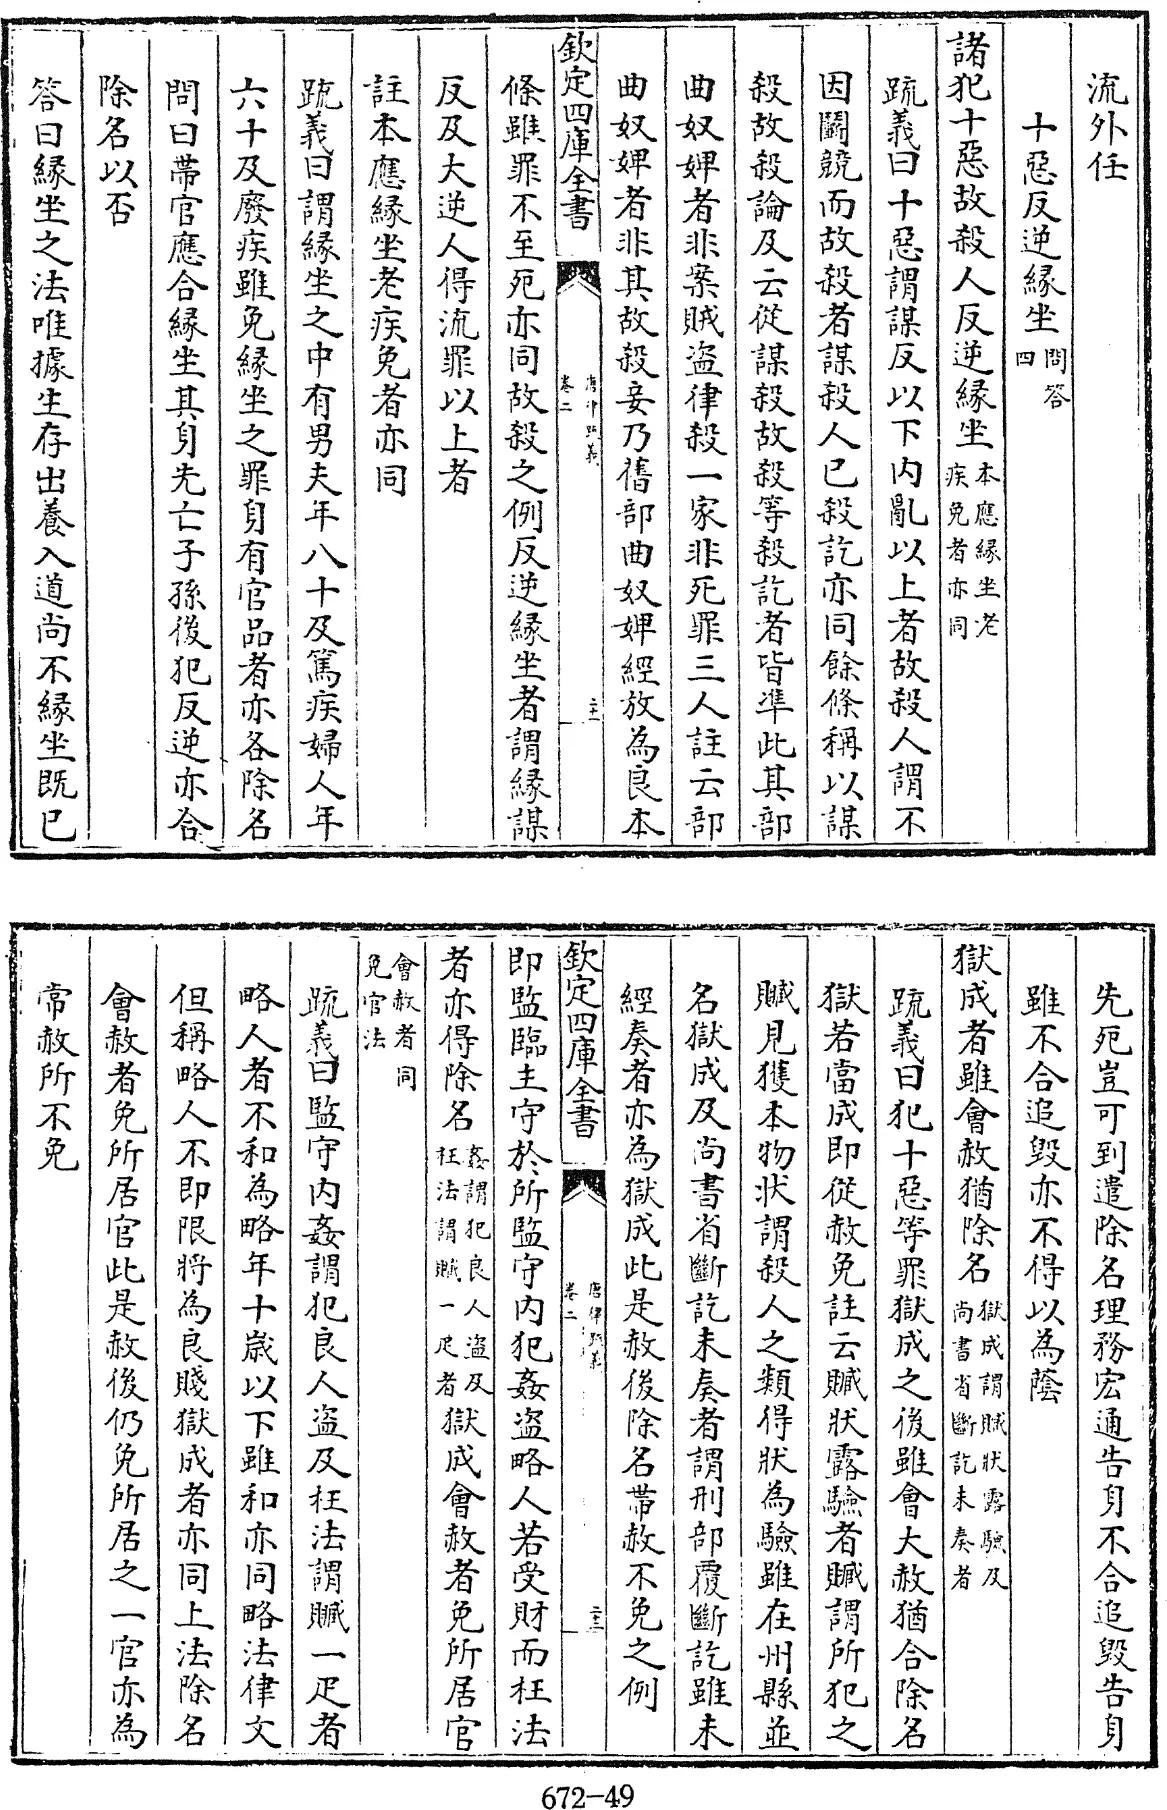 流外任
十惡反逆縁坐問答四
諸犯十惡故殺人反逆縁坐本應縁坐老疾免者亦同
疏義曰十惡謂謀反以下内亂以上者故殺人謂不
因鬬競而故殺者謀殺人已殺訖亦同餘條稱以謀
殺故殺論及云從謀殺故殺等殺訖者皆準此其部
曲奴婢者非案賊盗律殺一家非死罪三人註云部
曲奴婢者非其故殺妾乃舊部曲奴婢經放為良本
欽定四庫全書
唐律疏義
卷二
條雖罪不至死亦同故殺之例反逆縁坐者謂縁謀
反及大逆人得流罪以上者
註本應縁坐老疾免者亦同
疏義曰謂縁坐之中有男夫年八十及篤疾婦人年
六十及廢疾雖免縁坐之罪身有官品者亦各除名
問曰帶官應合縁坐其身先亡子孫後犯反逆亦合
除名以否
答曰縁坐之法唯據生存出養入道尚不縁坐既已
先死豈可到遣除名理務宏通告身不合追毁告身
雖不合追毁亦不得以為蔭
獄成者雖會赦猶除名獄成謂贓狀露驗及尚書省斷訖未奏者
疏義曰犯十惡等罪獄成之後雖會大赦猶合除名
獄若當成即從赦免註云贓狀露驗者贓謂所犯之
贓見獲本物狀謂殺人之類得狀為驗雖在州縣並
名獄成及尚書省斷訖未奏者謂刑部覆斷訖雖未
經奏者亦為獄成此是赦後除名帶赦不免之例
欽定四庫全書
唐律疏義
卷二
即監臨主守於所監守内犯姦盗略人若受財而枉法
者亦得除名姦謂犯良人盗及枉法謂贓一疋者獄成會赦者免所居官
會赦者同免官法
疏義曰監守内姦謂犯良人盗及枉法謂贓一疋者
略人者不和為略年十歳以下雖和亦同略法律文
但稱略人不即限將為良賤獄成者亦同上法除名
會赦者免所居官此是赦後仍免所居之一官亦為
常赦所不免
672-49